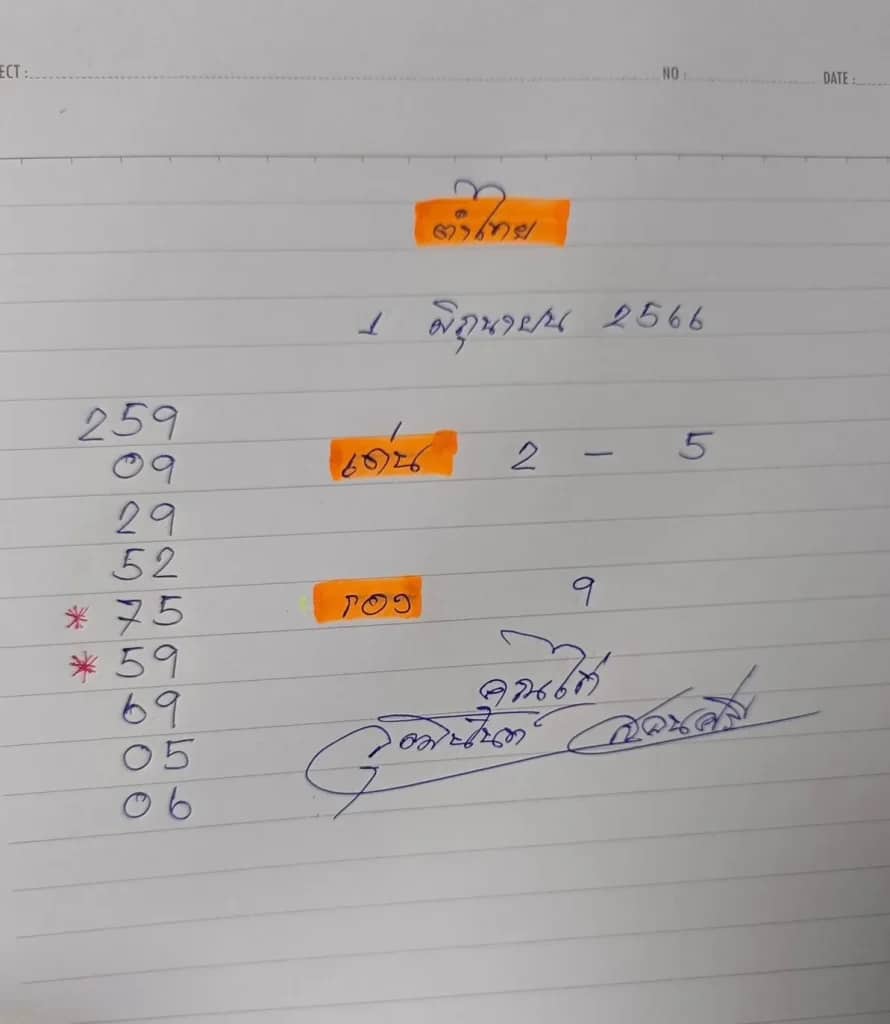 ECT :
NO :
DATE :
ตำไทย
1 มิถุนายน 2566
259
09
เด่น 2 - 5
29
52
* 75
รอง 9
* 59
69
05
06